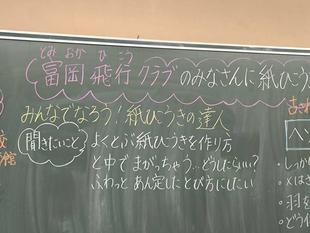 とみ おか ひ こう
富岡 飛行 クラブのみなさんに紙ひこう
みんなでなろう！紙ひうきの達人
聞きたいこと
よくとぶ紙ひうきを作り方
と中でまがっちゃう…どうしたらいい？
ふわっと あん定したとび方にしたい
・しっか
・羽を
・どうイ